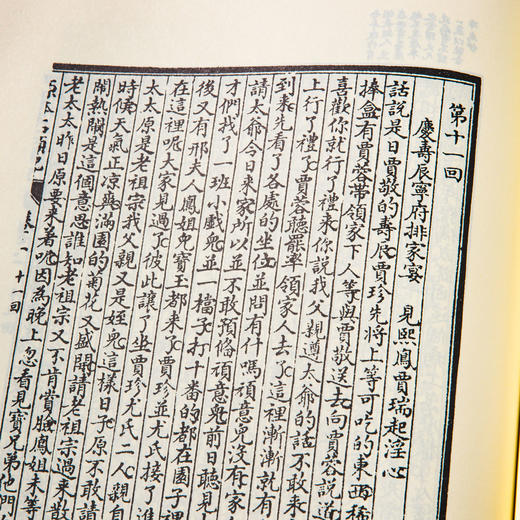 第十一回
慶壽辰寧府排家宴　見熙鳳賈瑞起淫心
話說是日賈敬的壽辰賈珍先將上等可吃的東西稀
捧盒有賈蓉帶領家下人等與賈敬送去向賈蓉說道
喜歡你就行了禮來你說我父親遵太爺的話不敢來
上行了禮了賈蓉聽罷率領家人去了這裡漸漸就有
到來先看了各處的坐位並問有什嗎頑意兒沒有家人
請太爺今日來家所以並不敢預備頑意兒前日聽見
才們找了一班小戲兒並一檔子打十番的都在園子裡
後又有邢夫人鳳姐兒寶玉都來了賈珍並尤氏接了進
在這裡呢大家見過了彼此讓了坐賈珍尤氏二人親自
太太原是老祖宗我父親又是姪兒這樣日子原不敢請
時候天氣正凉爽滿園的菊花又盛開請老祖宗過來散
鬧熱鬧是這個意思誰知老祖宗又不肯賞臉鳳姐未等
老太太昨日原要來着呢因為晚上忽看見寶兄弟他們
石頭記　卷　十一回